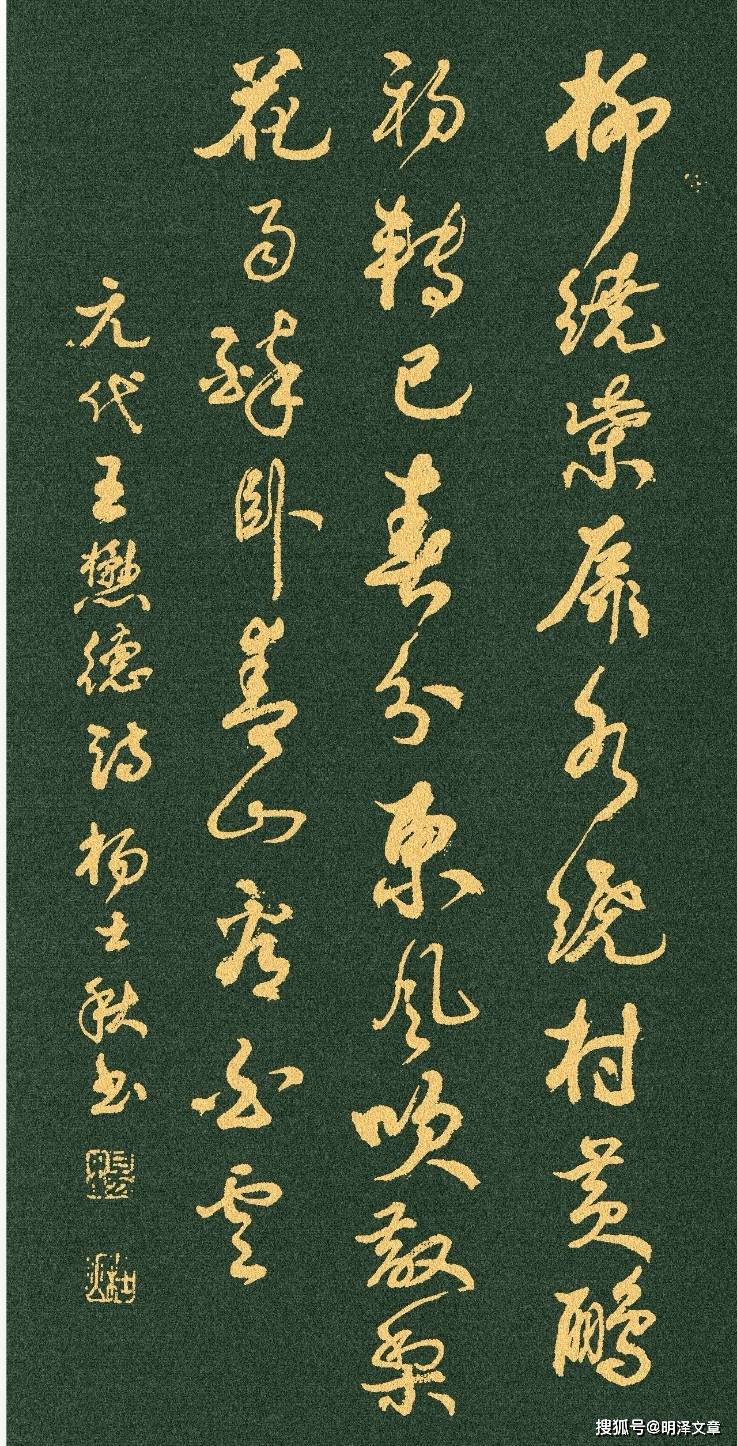 柳绕柴扉水绕村黄鹂
初轉已春分東风吹散梨
花雨醉卧春山看白雲
元代王懋德诗杨士秋书
搜狐号@明泽文章